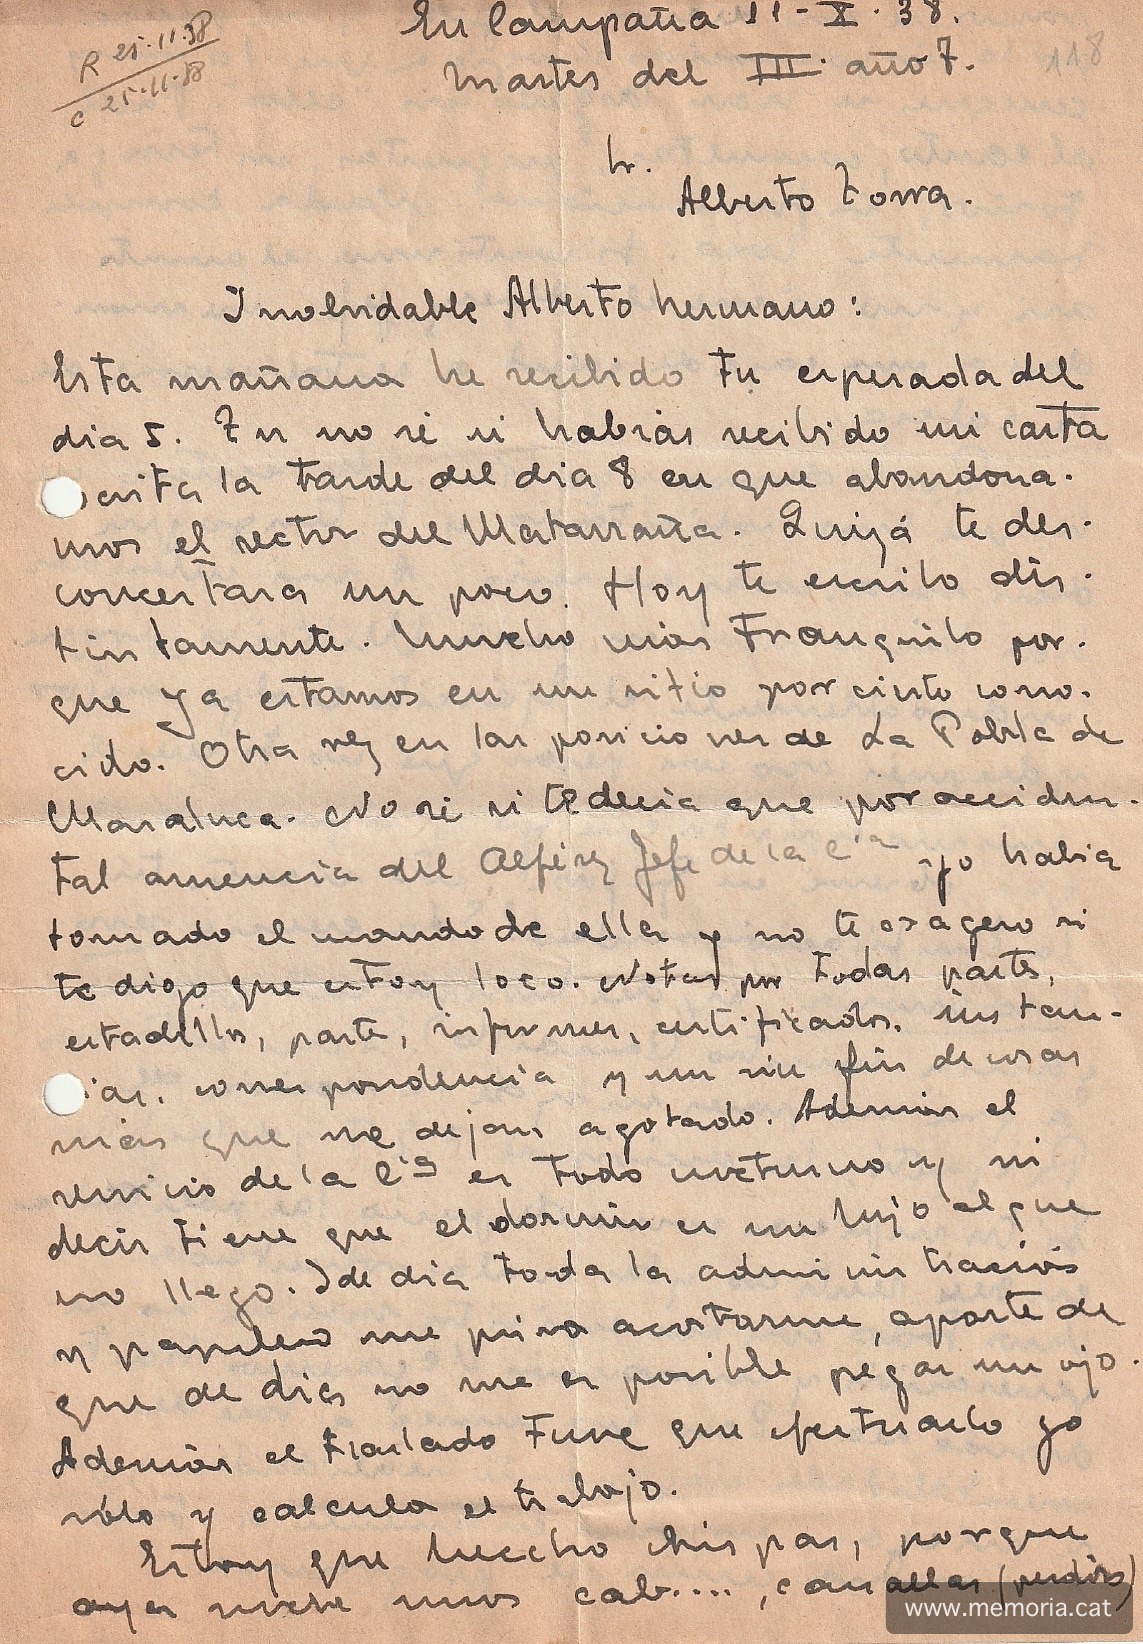 En Campaña 11-X-38.
Martes del III año 7.
R 25-11-38
C 25-11-38
118
Sr.
Alberto Torra.
Inolvidable Alberto hermano:
Esta mañana he recibido tu esperada del
dia 5. Tu no sé si habrás recibido mi carta
scrita la tarde del dia 8 en que abandona-
mos el sector del Matarraña. Quizá te des-
concertara un poco. Hoy te escribo dis-
tintamente. Mucho más tranquilo por-
que ya estamos en un sitio por cierto cono-
cido. Otra vez en las posiciones de La Pobla de
Masaluca. No sé si te decia que por acciden-
tal ausencia del Alférez Jefe de la Cia yo habia
tomado el mando de ella y no te exagero si
te digo que estoy loco. Notas por todas partes,
estadillos, parte, informes, certificados, instan-
ias, correspondencia y un sin fin de cosas
más que me dejan agotado. Además el
servicio de la Cia es todo nocturno y ni
decir tiene que el dormir es un lujo al que
no llego. De dia toda la administración
y papeleo me priva acostarme, aparte de
que de dia no me es posible pegar un ojo.
Además el traslado tuve que efectuarlo yo
sólo y calcula el trabajo.
Estoy que hecho chispas, porque
ayer nueve unos cab...., canallas (perdón)
www.memoria.cat